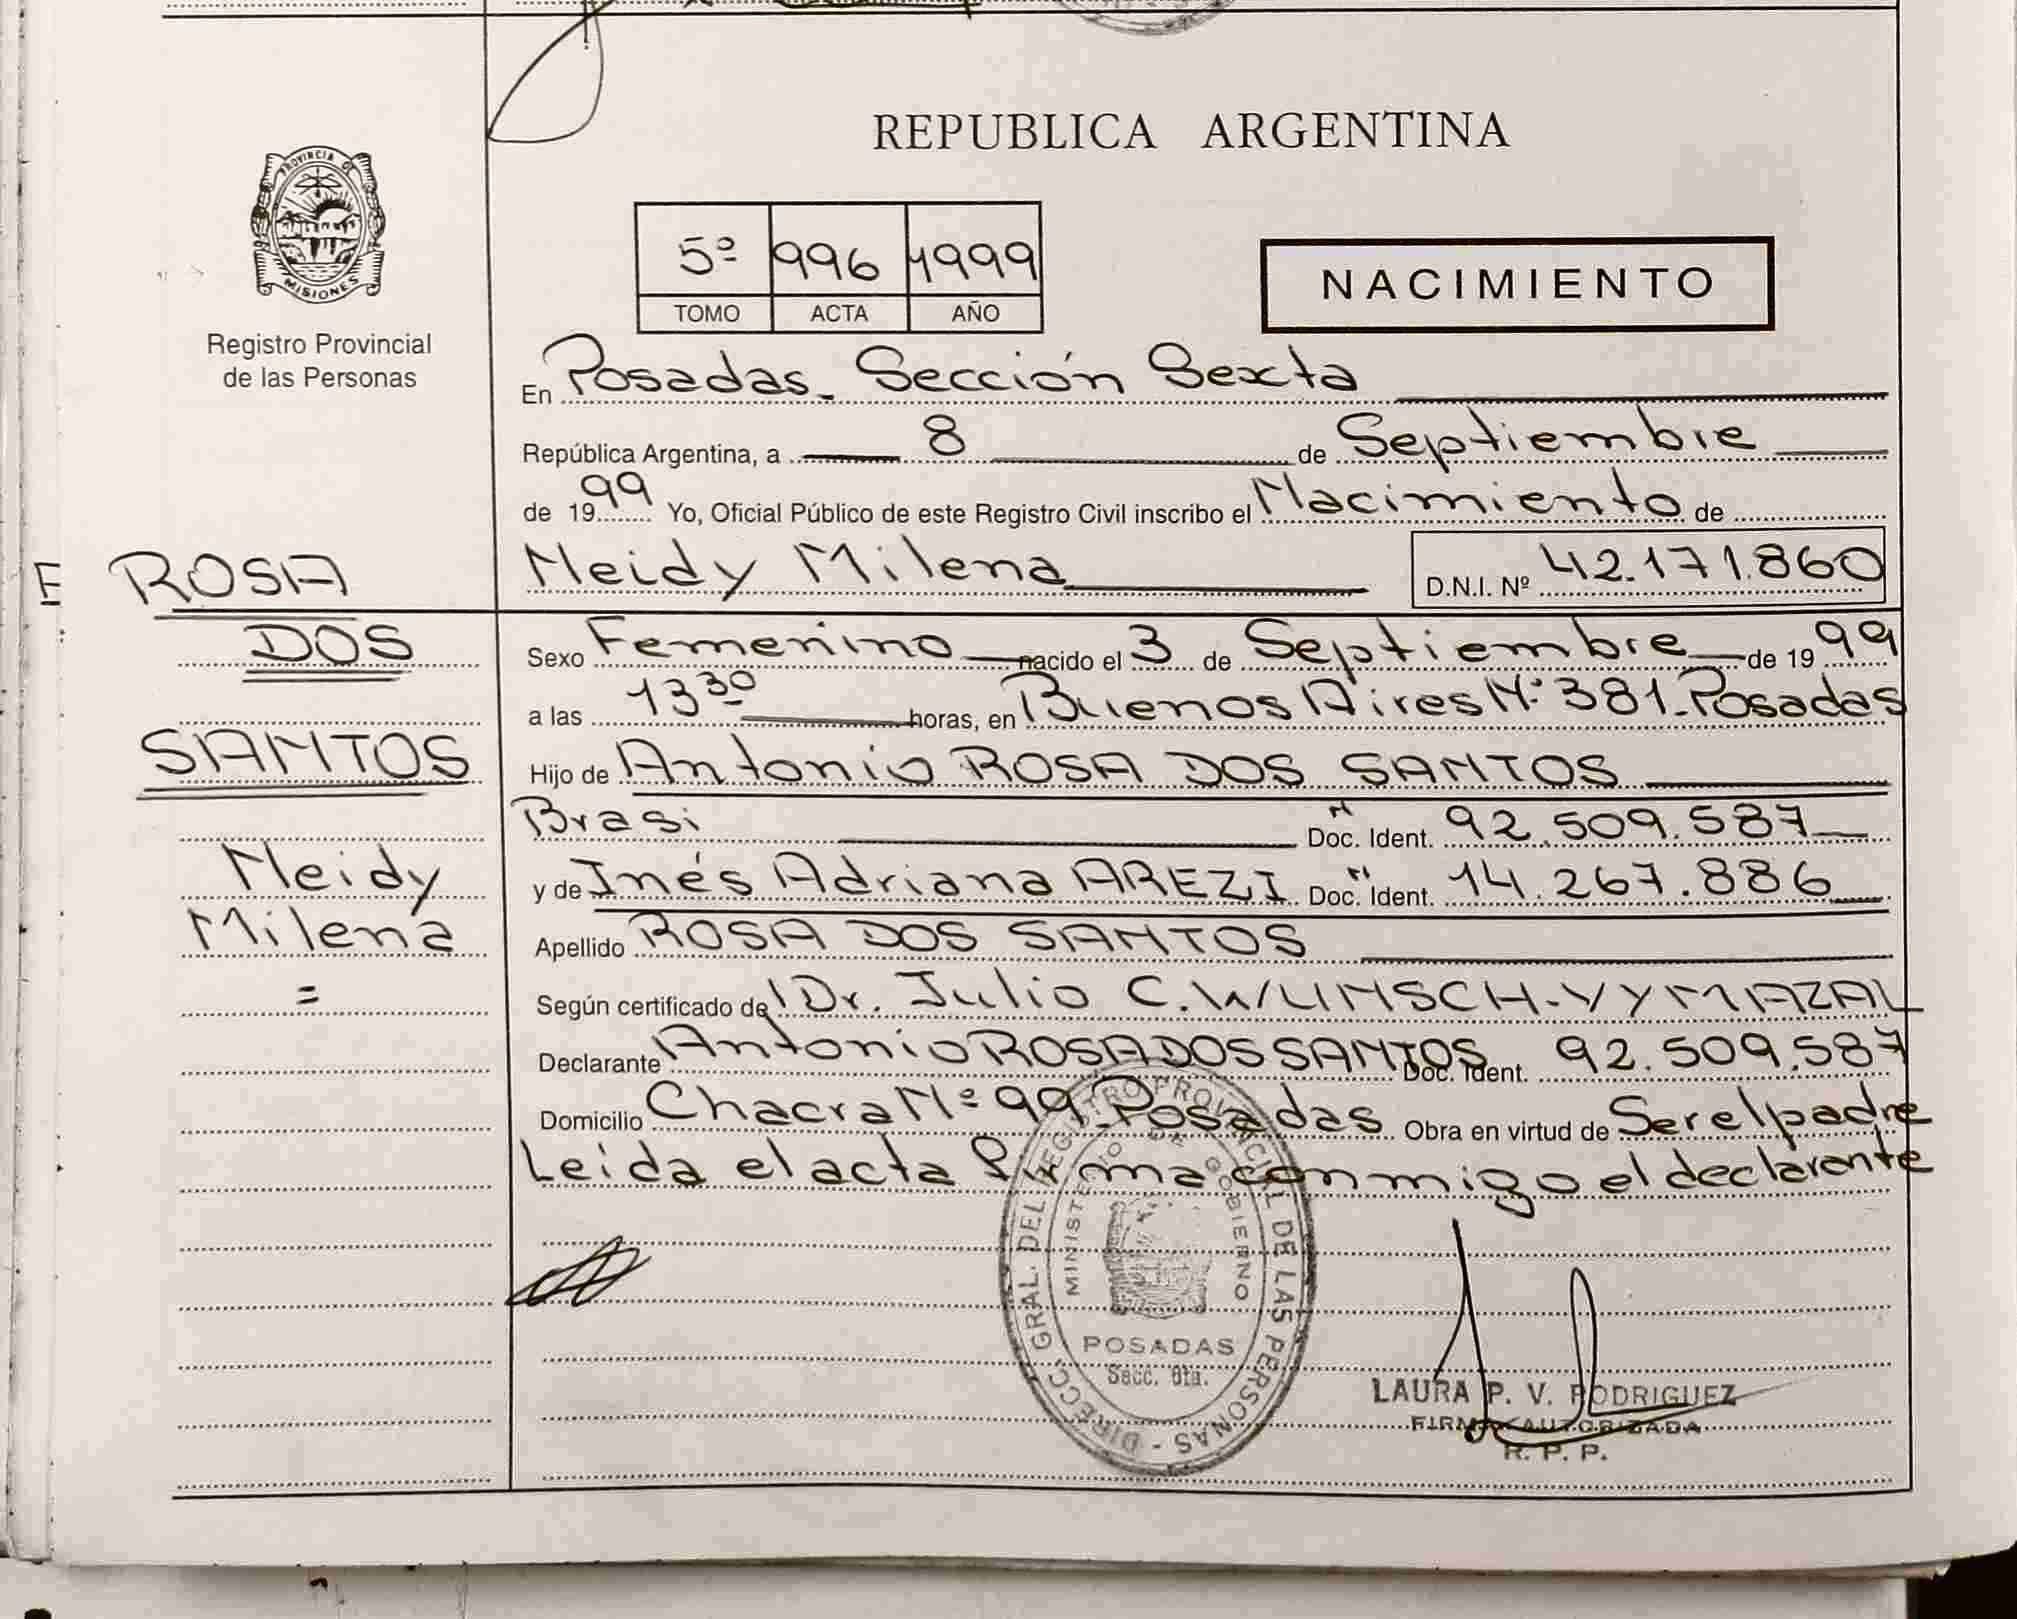 PROVINCIA DE
MISIONES
Registro Provincial
de las Personas
REPUBLICA ARGENTINA
5º 996 1999
TOMO ACTA AÑO
NACIMIENTO
En Posadas - Sección Sexta
República Argentina, a 8 de Septiembre
de 1999 Yo, Oficial Público de este Registro Civil inscribo el Nacimiento de
Neidy Milena D.N.I. Nº 42.171.860
F ROSA
DOS
SANTOS
Neidy
Milena
=
Sexo Femenino nacido el 3 de Septiembre de 1999
a las 13 30 horas, en Buenos Aires Nº 381 - Posadas
Hijo de Antonio ROSA DOS SANTOS
Brasi Doc. Ident. 92.509.587
y de Inés Adriana AREZI Doc. Ident. 14.267.886
Apellido ROSA DOS SANTOS
Según certificado de Dr. Julio C. WUNSCH-VYMAZAL
Declarante Antonio ROSA DOS SANTOS Doc. Ident. 92.509.587
Domicilio Chacra Nº 99 - Posadas Obra en virtud de Ser el padre
Leida el acta firma conmigo el declarante
DIRECC. GRAL. DEL REGISTRO PROVINCIAL DE LAS PERSONAS -
MINISTERIO DE GOBIERNO
POSADAS
Secc. 6ta.
LAURA P. V. RODRIGUEZ
FIRMA AUTORIZADA
R. P. P.